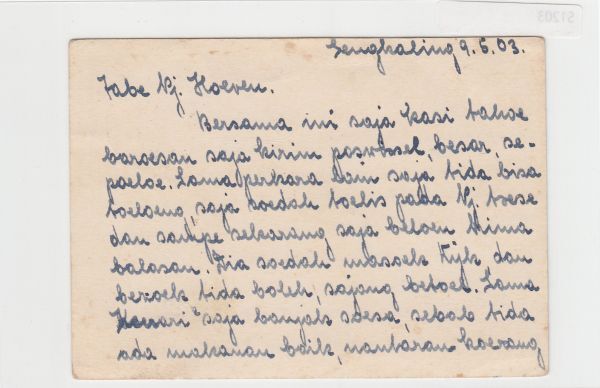 Sengkaling 9.6.03.
Tabe Nj. Hoeven.
Bersama ini saja kasi tahoe
baroesan saja kirim poswissel, besar, se-
poeloe. Lama perkara lain saja tida bisa
toeloeng, saja soedah toelis pada Nj. tsese
dan sampe sekarang saja beloen trima
balasan. Dia soedah masoek Kijk dan
bezoek tida boleh, sajang betoel. Lama
"Kenari" saja banjak soesa, sebab tida
ada makanan baik, nantaran koerang
51203